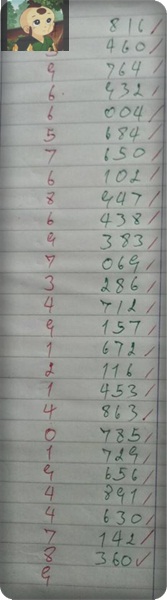 816/
460/
9 764/
6. 932/
6 004/
5 684/
7 650/
6 102/
8 947/
6 438/
9 383/
7 069/
3 286/
4 712/
9 157/
1 672/
2 116/
1 453/
4 863/
0 785/
1 729/
9 656/
4 891/
4 630/
7 142/
8 360✓
9